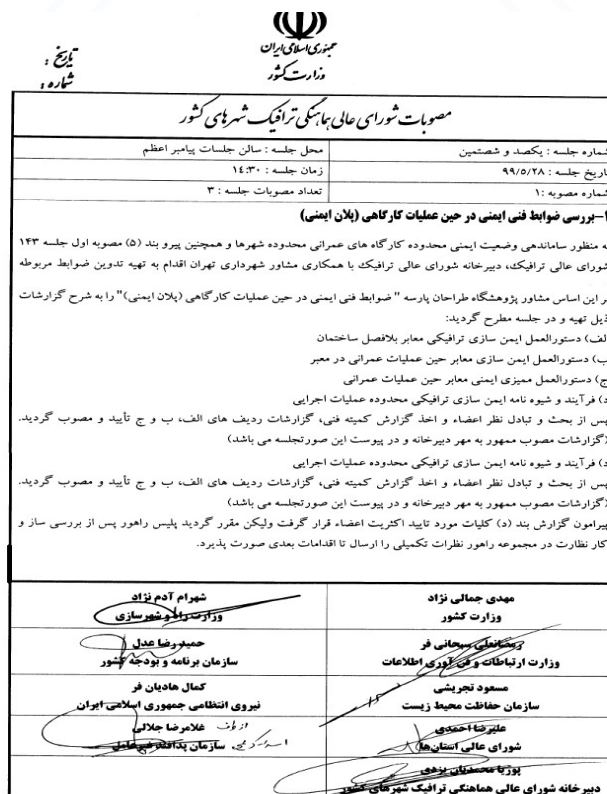 جمهوری اسلامی ایران
وزارت کشور
تاریخ :
شماره :
مصوبات شورای عالی هماهنگی ترافیک شهرهای کشور
شماره جلسه : یکصد و شصتمین
محل جلسه : سالن جلسات پیامبر اعظم
تاریخ جلسه : ۹۹/۵/۲۸
زمان جلسه : ۱۴:۳۰
شماره مصوبه :۱
تعداد مصوبات جلسه : ۳
۱-بررسی ضوابط فنی ایمنی در حین عملیات کارگاهی (پلان ایمنی)
به منظور ساماندهی وضعیت ایمنی محدوده کارگاه های عمرانی محدوده شهرها و همچنین پیرو بند (۵) مصوبه اول جلسه ۱۴۳
شورای عالی ترافیک، دبیرخانه شورای عالی ترافیک با همکاری مشاور شهرداری تهران اقدام به تهیه تدوین ضوابط مربوطه
بر این اساس مشاور پژوهشگاه طراحان پارسه " ضوابط فنی ایمنی در حین عملیات کارگاهی (پلان ایمنی)" را به شرح گزارشات
ذیل تهیه و در جلسه مطرح گردید:
الف) دستورالعمل ایمن سازی ترافیکی معابر بلافصل ساختمان
ب) دستورالعمل ایمن سازی معابر حین عملیات عمرانی در معبر
ج) دستورالعمل ممیزی ایمنی معابر حین عملیات عمرانی
د) فرآیند و شیوه نامه ایمن سازی ترافیکی محدوده عملیات اجرایی
پس از بحث و تبادل نظر اعضاء و اخذ گزارش کمیته فنی، گزارشات ردیف های الف، ب و ج تأیید و مصوب گردید.
(گزارشات مصوب ممهور به مهر دبیرخانه و در پیوست این صورتجلسه می باشد)
د) فرآیند و شیوه نامه ایمن سازی ترافیکی محدوده عملیات اجرایی
پس از بحث و تبادل نظر اعضاء و اخذ گزارش کمیته فنی، گزارشات ردیف های الف، ب و ج تأیید و مصوب گردید.
(گزارشات مصوب ممهور به مهر دبیرخانه و در پیوست این صورتجلسه می باشد)
پیرامون گزارش بند (د) کلیات مورد تایید اکثریت اعضاء قرار گرفت ولیکن مقرر گردید پلیس راهور پس از بررسی ساز و
کار نظارت در مجموعه راهور نظرات تکمیلی را ارسال تا اقدامات بعدی صورت پذیرد.
مهدی جمالی نژاد
وزارت کشور
شهرام آدم نژاد
وزارت راه و شهرسازی
رمضانعلی سبحانی فر
وزارت ارتباطات و فن آوری اطلاعات
حمیدرضا عدل
سازمان برنامه و بودجه کشور
مسعود تجریشی
سازمان حفاظت محیط زیست
کمال هادیان فر
نیروی انتظامی جمهوری اسلامی ایران
علیرضا احمدی
شورای عالی استان ها
از طرف غلامرضا جلالی
سازمان پدافند غیرعامل
پوریا محمدیان یزدی
دبیرخانه شورای عالی هماهنگی ترافیک شهرهای کشور